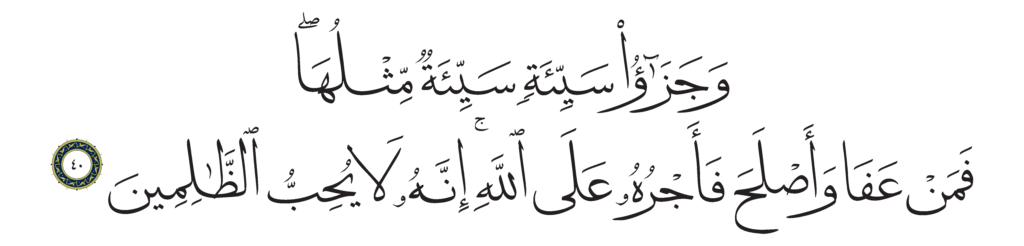 وَجَزَٰٓؤُا۟ سَيِّئَةٍۢ سَيِّئَةٌۭ مِّثْلُهَا ۖ
فَمَنْ عَفَا وَأَصْلَحَ فَأَجْرُهُۥ عَلَى ٱللَّهِ ۚ إِنَّهُۥ لَا يُحِبُّ ٱلظَّٰلِمِينَ ٤٠